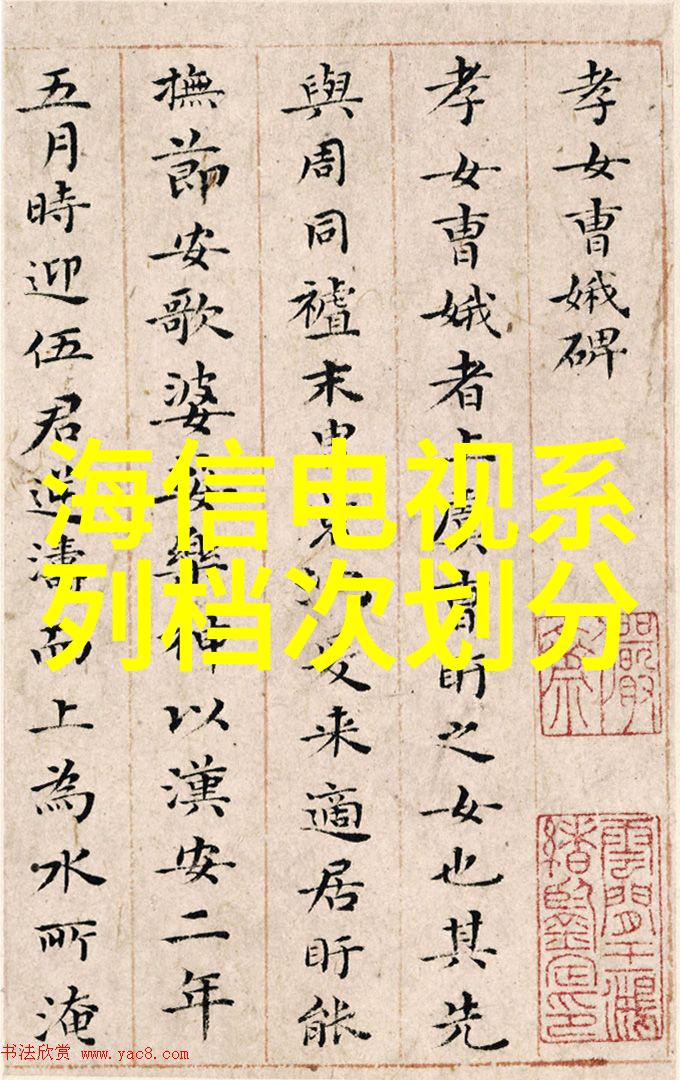 孝女曹娥碑
孝女曹娥者上虞曹盱之女也其先
與周同末爰来適居盱能
撫節安歌婆娑樂神以漢安二年
五月時迎伍君逆濤而上為水所淹
海信电视系
列档次划分
书法欣赏 www.yac8.com